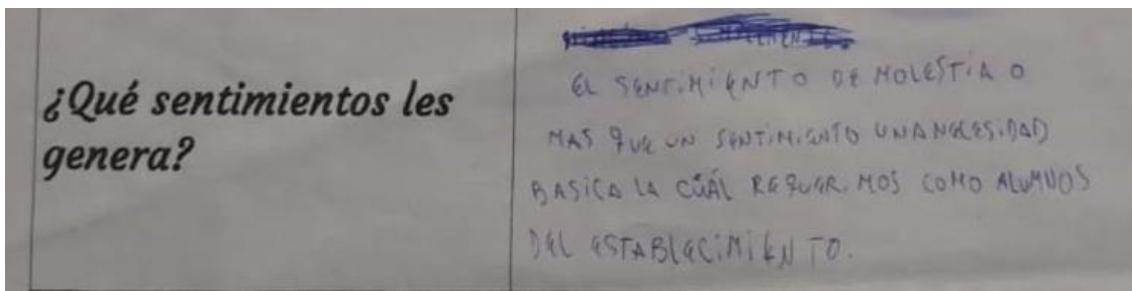 ¿Qué sentimientos les
genera?
EL SENTIMIENTO DE MOLESTIA O
MAS QUE UN SENTIMIENTO UNA NECESIDAD
BASICA LA CUÁL REQUERIMOS COMO ALUMNOS
DEL ESTABLECIMIENTO.